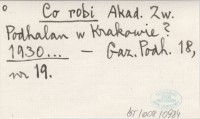 Co robi Akad. Zw.
Podhalan w Krakowie?
1930... — Gaz. Podh. 18,
nr 19.